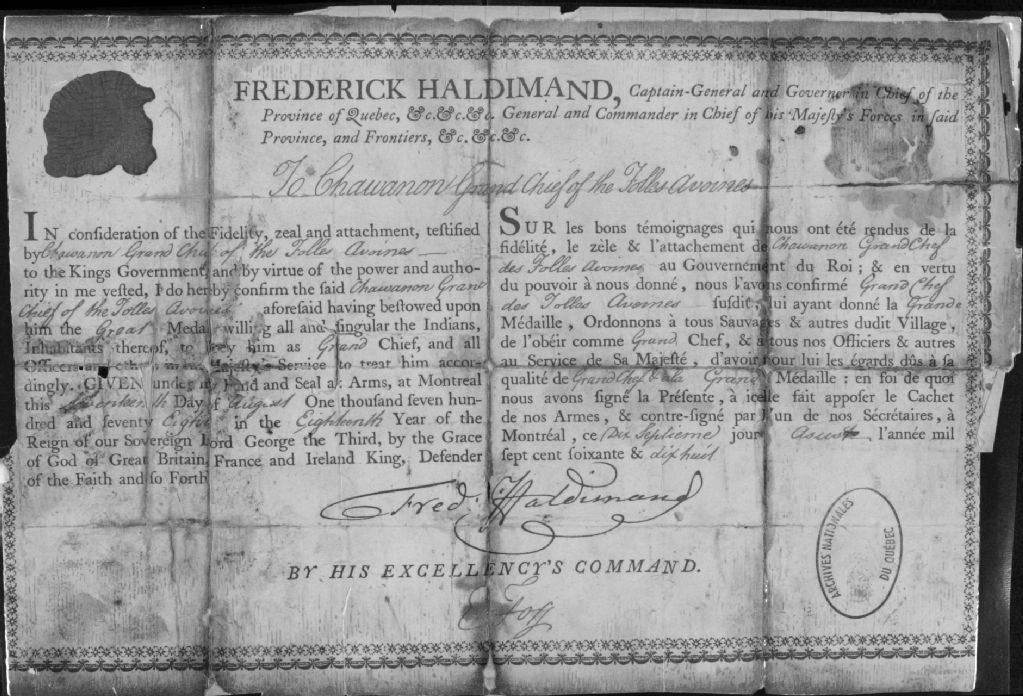 FREDERICK HALDIMAND, Captain-General and Governor in Chief of the
Province of Quebec, &c. &c. &c. General and Commander in Chief of his Majesty's Forces in said
Province, and Frontiers, &c. &c. &c.
To Chawanon Grand Chief of the Folles Avoines
IN consideration of the Fidelity, zeal and attachment, testified
by Chawanon Grand Chief of the Folles Avoines
to the Kings Government, and by virtue of the power and autho-
rity in me vested, I do hereby confirm the said Chawanon Grand
Chief of the Folles Avoines aforesaid having bestowed upon
him the Great Medal willing all and singular the Indians,
Inhabitants thereof, to obey him as Grand Chief, and all
Officers and others in his Majesty's Service to treat him accor-
dingly. GIVEN under my Hand and Seal at Arms, at Montreal
this Seventeenth Day of August One thousand seven hun-
dred and seventy Eight in the Eighteenth Year of the
Reign of our Sovereign Lord George the Third, by the Grace
of God of Great Britain, France and Ireland King, Defender
of the Faith and so Forth
SUR les bons témoignages qui nous ont été rendus de la
fidélité, le zèle & l'attachement de Chawanon Grand Chef
des Folles Avoines au Gouvernement du Roi ; & en vertu
du pouvoir à nous donné, nous l'avons confirmé Grand Chef
des Folles Avoines susdit, lui ayant donné la Grande
Médaille, Ordonnons à tous Sauvages & autres dudit Village,
de l'obéir comme Grand Chef, & à tous nos Officiers & autres
au Service de Sa Majesté, d'avoir pour lui les égards dûs à sa
qualité de Grand Chef & à la Grande Médaille : en foi de quoi
nous avons signé la Présente, à icelle fait apposer le Cachet
de nos Armes, & contre-signé par l'un de nos Sécrétaires, à
Montréal, ce Dix Septieme jour Aoust, l'année mil
sept cent soixante & dix huit
Fred: Haldimand
BY HIS EXCELLENCY'S COMMAND.
E Foy
ARCHIVES NATIONALES
DU QUÉBEC